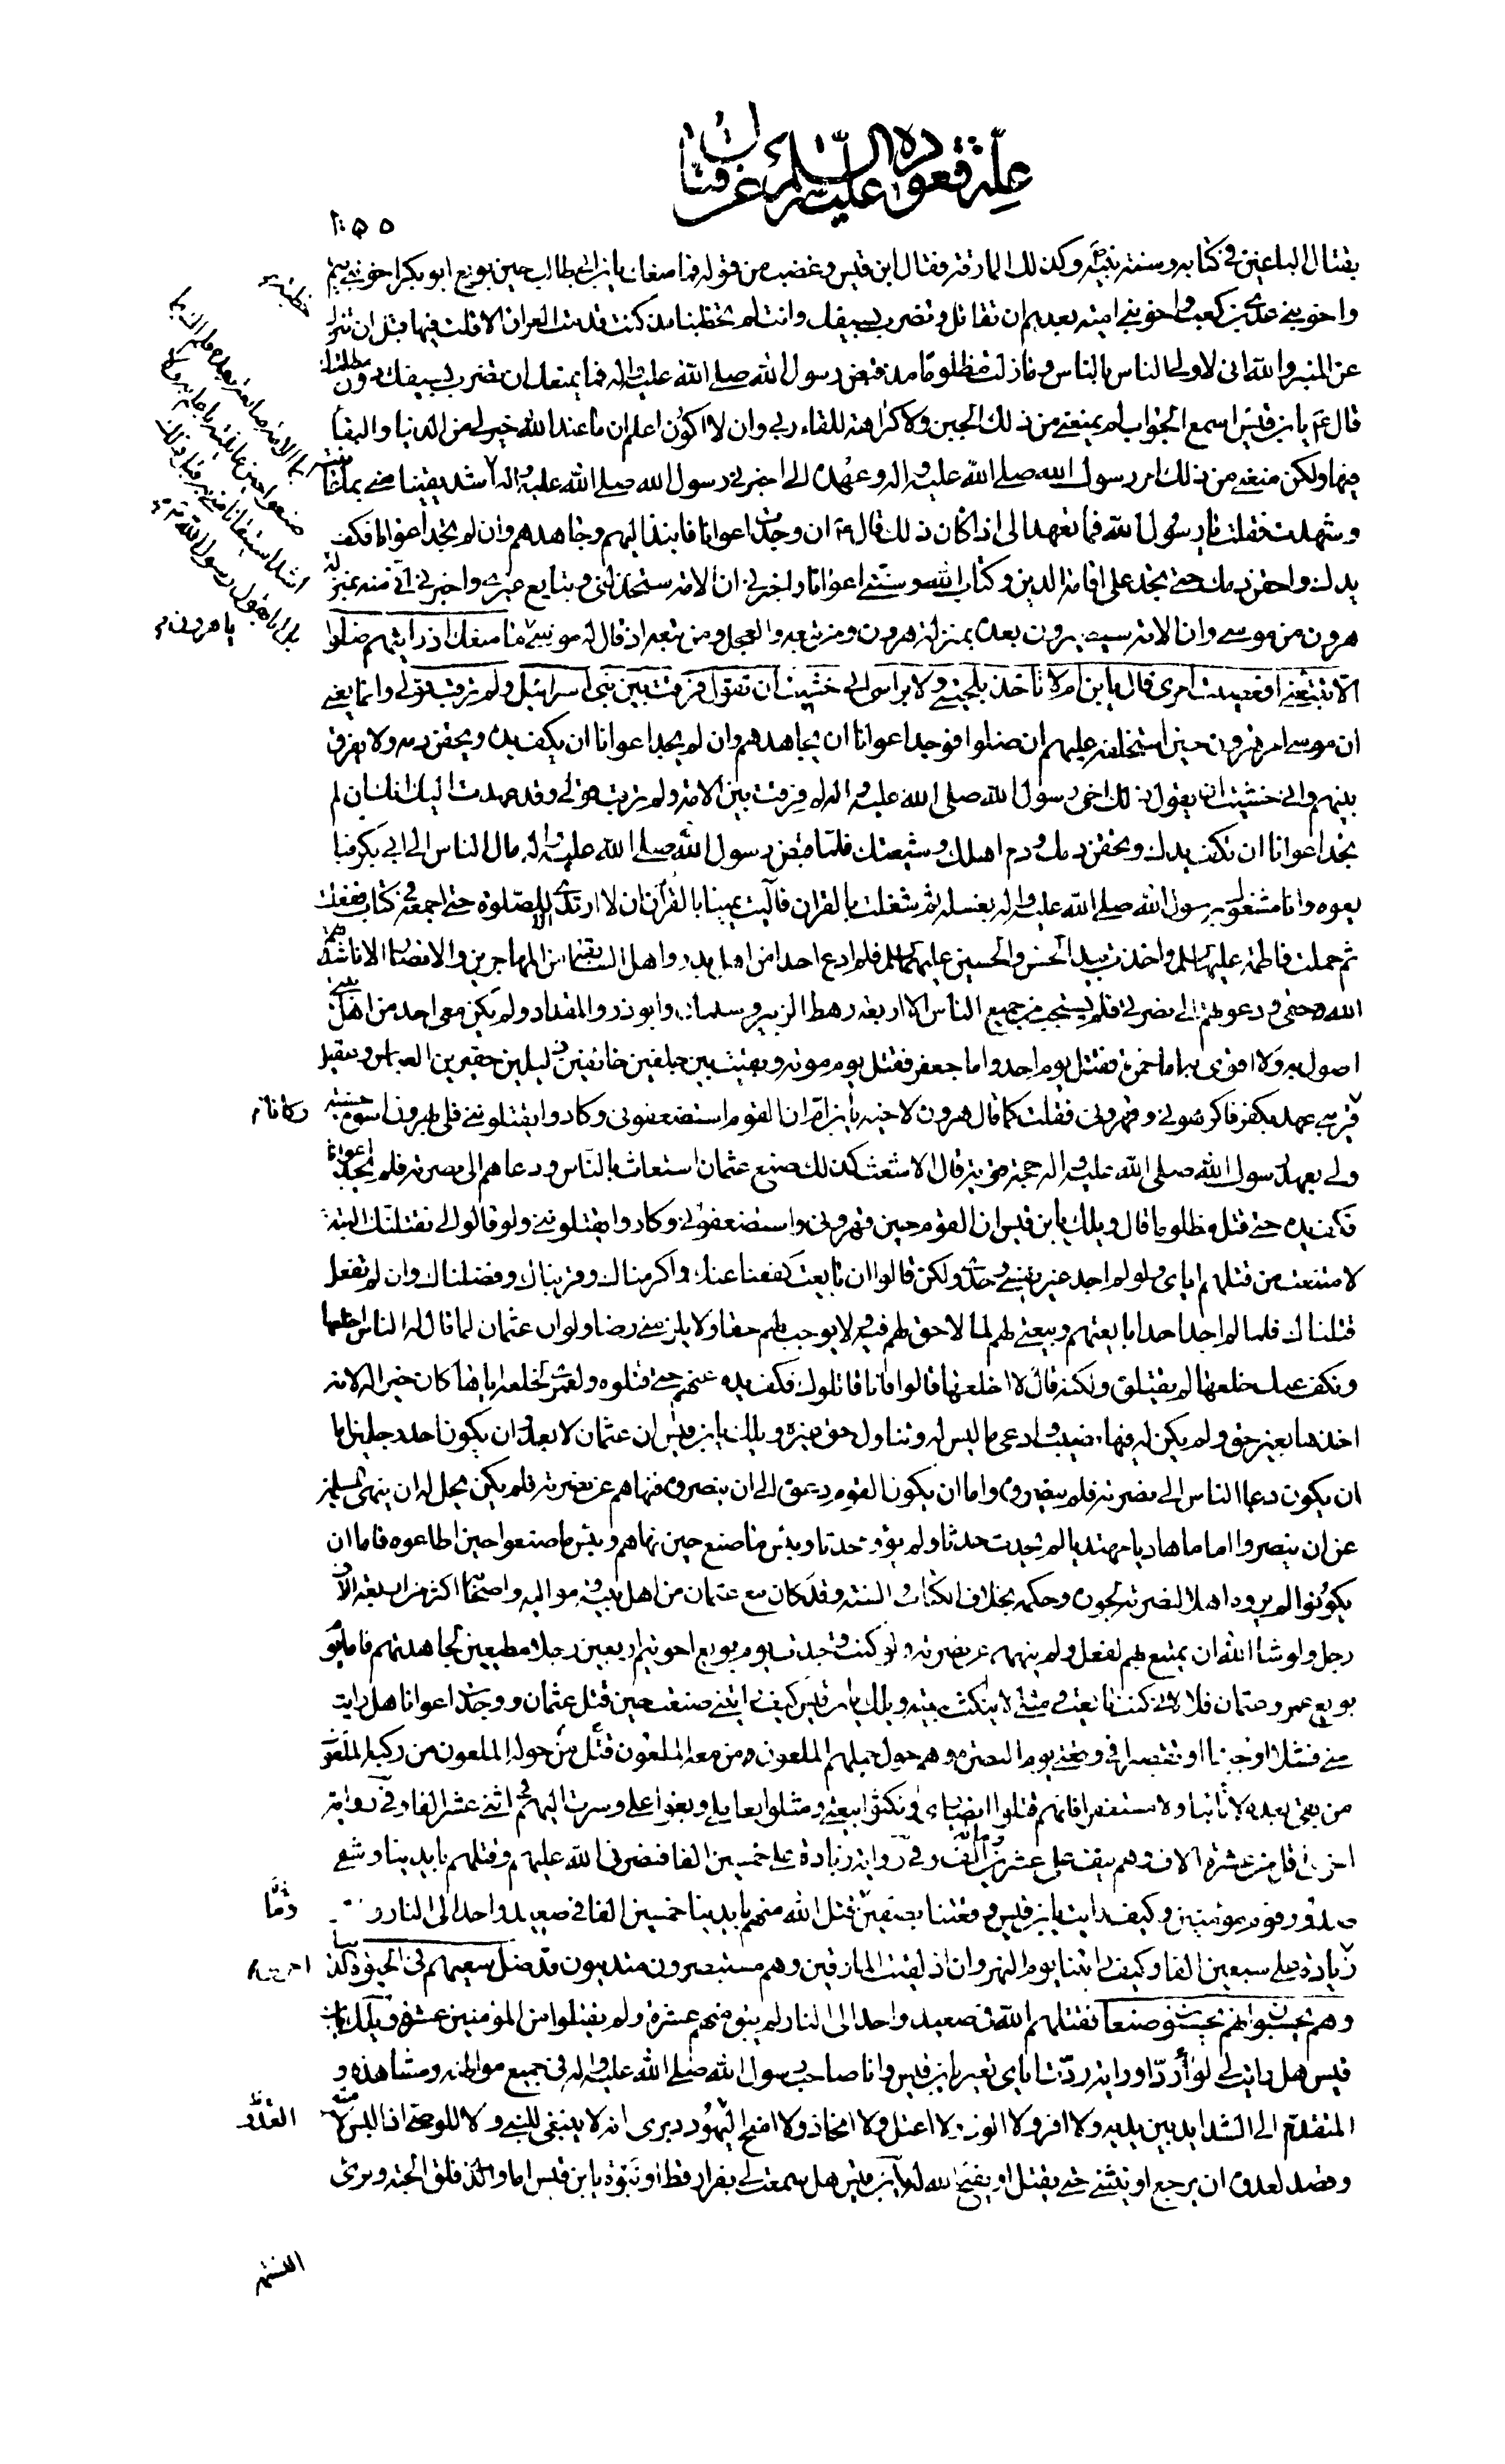 علة قعوده عليه السلام عن قتال
بقتال الباغين في كتابه وسنة نبيه وكذلك المارقة فقال ابن قيس وغضب من قوله فما منعك يا بن ابي طالب حين بويع ابو بكر اخو بني تيم
واخو بني عدي بن كعب واخو بني امية بعدهم ان تقاتل وتضرب بسيفك وانت لم تخطبنا مذ كنت قدمت العراق الا قلت فيها قبل ان تنزل
عن المنبر والله اني لاولى الناس بالناس وما زلت مظلوما مذ قبض رسول الله صلى الله عليه واله فما يمنعك ان تضرب بسيفك دون مظلمتك
قال ع يا بن قيس اسمع الجواب لم يمنعني من ذلك الجبن ولا كراهة للقاء ربي وان لا اكون اعلم ان ما عند الله خير لي من الدنيا والبقا
فيها ولكن منعني من ذلك امر رسول الله صلى الله عليه واله وعهده الي اخبرني رسول الله صلى الله عليه واله اشد يقينا مني بما عاينت
وشهدت فقلت يا رسول الله فما تعهد الي اذا كان ذلك قال ان وجدت اعوانا فانبذ اليهم وجاهدهم وان لم تجد اعوانا فكف
يدك واحقن دمك حتى تجد على اقامة الدين وكتاب الله وسنتي اعوانا واخبرني ان الامة ستخذلني وتبايع غيري واخبرني اني منه بمنزلة
هرون من موسى وان الامة سيصيرون بعده بمنزلة هرون ومن تبعه والعجل ومن تبعه اذ قال له موسى ما منعك اذ رايتهم ضلوا
الا تتبعني افعصيت امري قال يا بن ام لا تاخذ بلحيتي ولا براسي اني خشيت ان تقول فرقت بين بني اسرائيل ولم ترقب قولي وانما يعني
ان موسى امر هرون حين استخلفه عليهم ان ضلوا فوجد اعوانا ان يجاهدهم وان لم يجد اعوانا ان يكف يده ويحقن دمه ولا يفرق
بينهم واني خشيت ان يقول ذلك اخي رسول الله صلى الله عليه واله لم فرقت بين الامة ولم ترقب قولي وقد عهدت اليك انك ان لم
تجد اعوانا ان تكف يدك وتحقن دمك ودم اهلك وشيعتك فلما قبض رسول الله صلى الله عليه واله مال الناس الى ابي بكر فبا
يعوه وانا مشغول برسول الله صلى الله عليه واله بغسله ثم شغلت بالقرآن فآليت يمينا بالقرآن ان لا ارتدي الا للصلوة حتى اجمعه في كتاب ففعلت
ثم حملت فاطمة عليها السلم واخذت بيد الحسن والحسين عليهما السلم فلم ادع احدا من اهل بدر واهل السابقة من المهاجرين والانصار الا ناشدتهم
الله وحقي ودعوتهم الى نصرتي فلم يستجب من جميع الناس الا اربعة رهط الزبير وسلمان وابو ذر والمقداد ولم يكن معي احد من اهل بيتي
اصول به ولا اقوى به اما حمزة فقتل يوم احد واما جعفر فقتل يوم موتة وبقيت بين جلفين خائفين ذليلين حقيرين العباس وعقيل
قريبي عهد بكفر فاكرهوني وقهروني فقلت كما قال هرون لاخيه يا بن ام ان القوم استضعفوني وكادوا يقتلونني فلي بهرون اسوة حسنة
ولي بعهد رسول الله صلى الله عليه واله حجة قوية قال الاشعث كذلك صنع عثمان استغاث بالناس ودعاهم الى نصرته فلم يجد اعوانا
فكف يده حتى قتل مظلوما قال ويلك يا بن قيس ان القوم حين قهروني واستضعفوني وكادوا يقتلونني ولو قالوا لي نقتلنك البتة
لامتنعت من قتلهم اياي ولو لم اجد غير نفسي وحدي ولكن قالوا ان بايعت كففنا عنك واكرمناك وقربناك وفضلناك وان لم تفعل
قتلناك فلما لم اجد احدا بايعتهم وبيعتي لهم لما لا حق لهم فيه لا يوجب لهم حقا ولا يلزمني رضا ولو ان عثمان لما قال له الناس اخلعها
ونكف عنك خلعها لم يقتلوه ولكنه قال لا اخلعها قالوا فانا قاتلوك فكف يده عنهم حتى قتلوه ولعمري لخلعه اياها كان خيرا له لانه
اخذها بغير حق ولم يكن له فيها نصيب وادعى ما ليس له وتناول حق غيره ويلك يا بن قيس ان عثمان لا يعدو ان يكون احد رجلين اما
ان يكون دعا الناس الى نصرته فلم ينصروه واما ان يكون القوم دعوه الى ان ينصروه فنهاهم عن نصرته فلم يكن يحل له ان ينهى المسلمين
عن ان ينصروا اماما هاديا مهتديا لم يحدث حدثا ولم يؤو محدثا وبئس ما صنع حين نهاهم وبئس ما صنعوا حين اطاعوه فاما ان
يكونوا لم يروه اهلا لنصرته لجوره وحكمه بخلاف الكتاب والسنة وقد كان مع عثمان من اهل بيته ومواليه واصحابه اكثر من اربعة الاف
رجل ولو شاء الله ان يمتنع بهم لفعل ولم ينههم عن نصرته ولو كنت وجدت يوم بويع اخو تيم اربعين رجلا مطيعين لجاهدتهم فاما يوم
بويع عمر وعثمان فلا لاني كنت بايعت ومثلي لا ينكث بيعته ويلك يا بن قيس كيف رايتني صنعت حين قتل عثمان ووجدت اعوانا هل رايت
مني فشلا او جبنا او تقصيرا في وقعتي يوم البصرة وهم حول جملهم الملعون ومن معه الملعون من قتل حوله الملعون من ركبه الملعون
من بقي بعده لا تائبا ولا مستغفرا فانهم قتلوا انصاري ونكثوا بيعتي ومثلوا بعاملي وبغوا علي وسرت اليهم في اثنى عشر الفا وفي رواية
اخرى اقل من عشرة الاف وهم نيف على عشرين ومائة الف وفي رواية زيادة على خمسين الفا فنصرني الله عليهم وقتلهم بايدينا وشفى
صدور قوم مؤمنين وكيف رايت يا بن قيس وقعتنا بصفين قتل الله منهم بايدينا خمسين الفا في صعيد واحد الى النار
زيادة على سبعين الفا وكيف رايتنا يوم النهروان اذ لقيت المارقين وهم مستبصرون متدينون قد ضل سعيهم في الحيوة الدنيا
وهم يحسبون انهم يحسنون صنعا فقتلهم الله في صعيد واحد الى النار لم يبق منهم عشرة ولم يقتلوا من المؤمنين عشرة ويلك يا بن
قيس هل رايت لي لواء رد او راية ردت اياي تعير يا بن قيس وانا صاحب رسول الله صلى الله عليه واله في جميع مواطنه ومشاهده و
المتقدم الى الشدايد بين يديه ولا افر ولا الوذ ولا اعتل ولا انحاز ولا امنح اليهود دبري انه لا ينبغي للنبي ولا للوصي اذا لبس لامته
وقصد لعدوه ان يرجع او ينثني حتى يقتل او يفتح الله له يا بن قيس هل سمعت لي بفرار قط او نبوة يا بن قيس اما والذي فلق الحبة وبرئ
النسمة